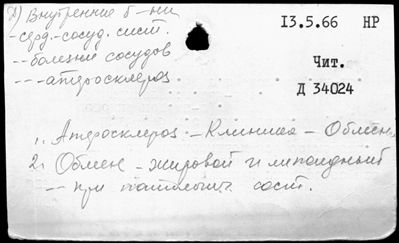 2) Внутренние б-ни
-серд.-сосуд. сист.
--болезни сосудов
---атеросклероз
13.5.66 НР
Чит.
Д 34024
1. Атеросклероз - Клиника - Обмен
2. Обмен - жировой и липоидный
-- при патологич. сост.